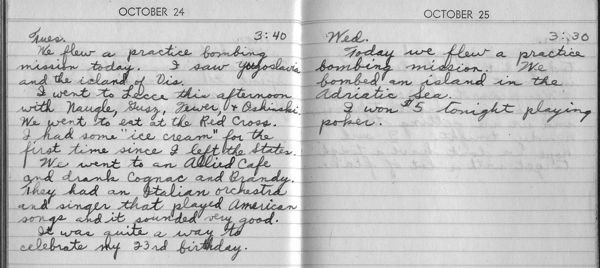 OCTOBER 24
Tues. 3:40
We flew a practice bombing
mission today. I saw Yugoslavia
and the island of Vis.
I went to Lecce this afternoon
with Naugle, Gus, Fewer, & Oshinski.
We went to eat at the Red Cross.
I had some "ice cream" for the
first time since I left the States.
We went to an Allied Cafe
and drank Cognac and Brandy.
They had an Italian orchestra
and singer that played American
songs and it sounded very good.
It was quite a way to
celebrate my 23rd birthday.
OCTOBER 25
Wed. 3:30
Today we flew a practice
bombing mission. We
bombed an island in the
Adriatic Sea.
I won $5 tonight playing
poker.